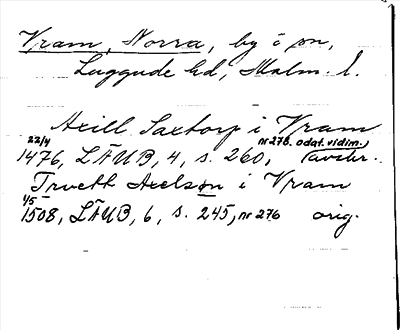 Vram, Norra, by i sn,
Luggude hd, Malm. l.
Axill Saxtorp i Vram
22/4 nr 278. odat. vidim.
1476, LÄUB, 4, s. 260, (avskr.
Trvelh Axelsøn i Vram
1/5
1508, LÄUB, 6, s. 245, nr 276 orig.